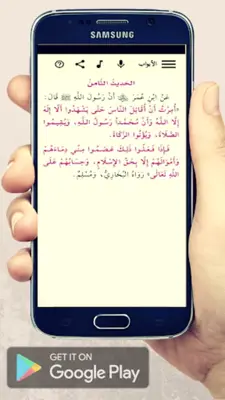 SAMSUNG
الأبواب
الحديث الثامن
عَنْ ابْنِ عُمَرَ ﷺ أَنَّ رَسُولَ اللَّهِ ﷺ قَالَ:
«أُمِرْتُ أَنْ أُقَاتِلَ النَّاسَ حَتَّى يَشْهَدُوا أَنْ لَا إلَهَ
إلَّا اللَّهُ وَأَنَّ مُحَمَّدًا رَسُولُ اللَّهِ، وَيُقِيمُوا
الصَّلَاةَ، وَيُؤْتُوا الزَّكَاةَ؛
فَإِذَا فَعَلُوا ذَلِكَ عَصَمُوا مِنِّي دِمَاءَهُمْ
وَأَمْوَالَهُمْ إلَّا بِحَقِّ الْإِسْلَامِ، وَحِسَابُهُمْ عَلَى
اللَّهِ تَعَالَى» رَوَاهُ الْبُخَارِيُّ، وَمُسْلِمٌ.
GET IT ON
Google Play